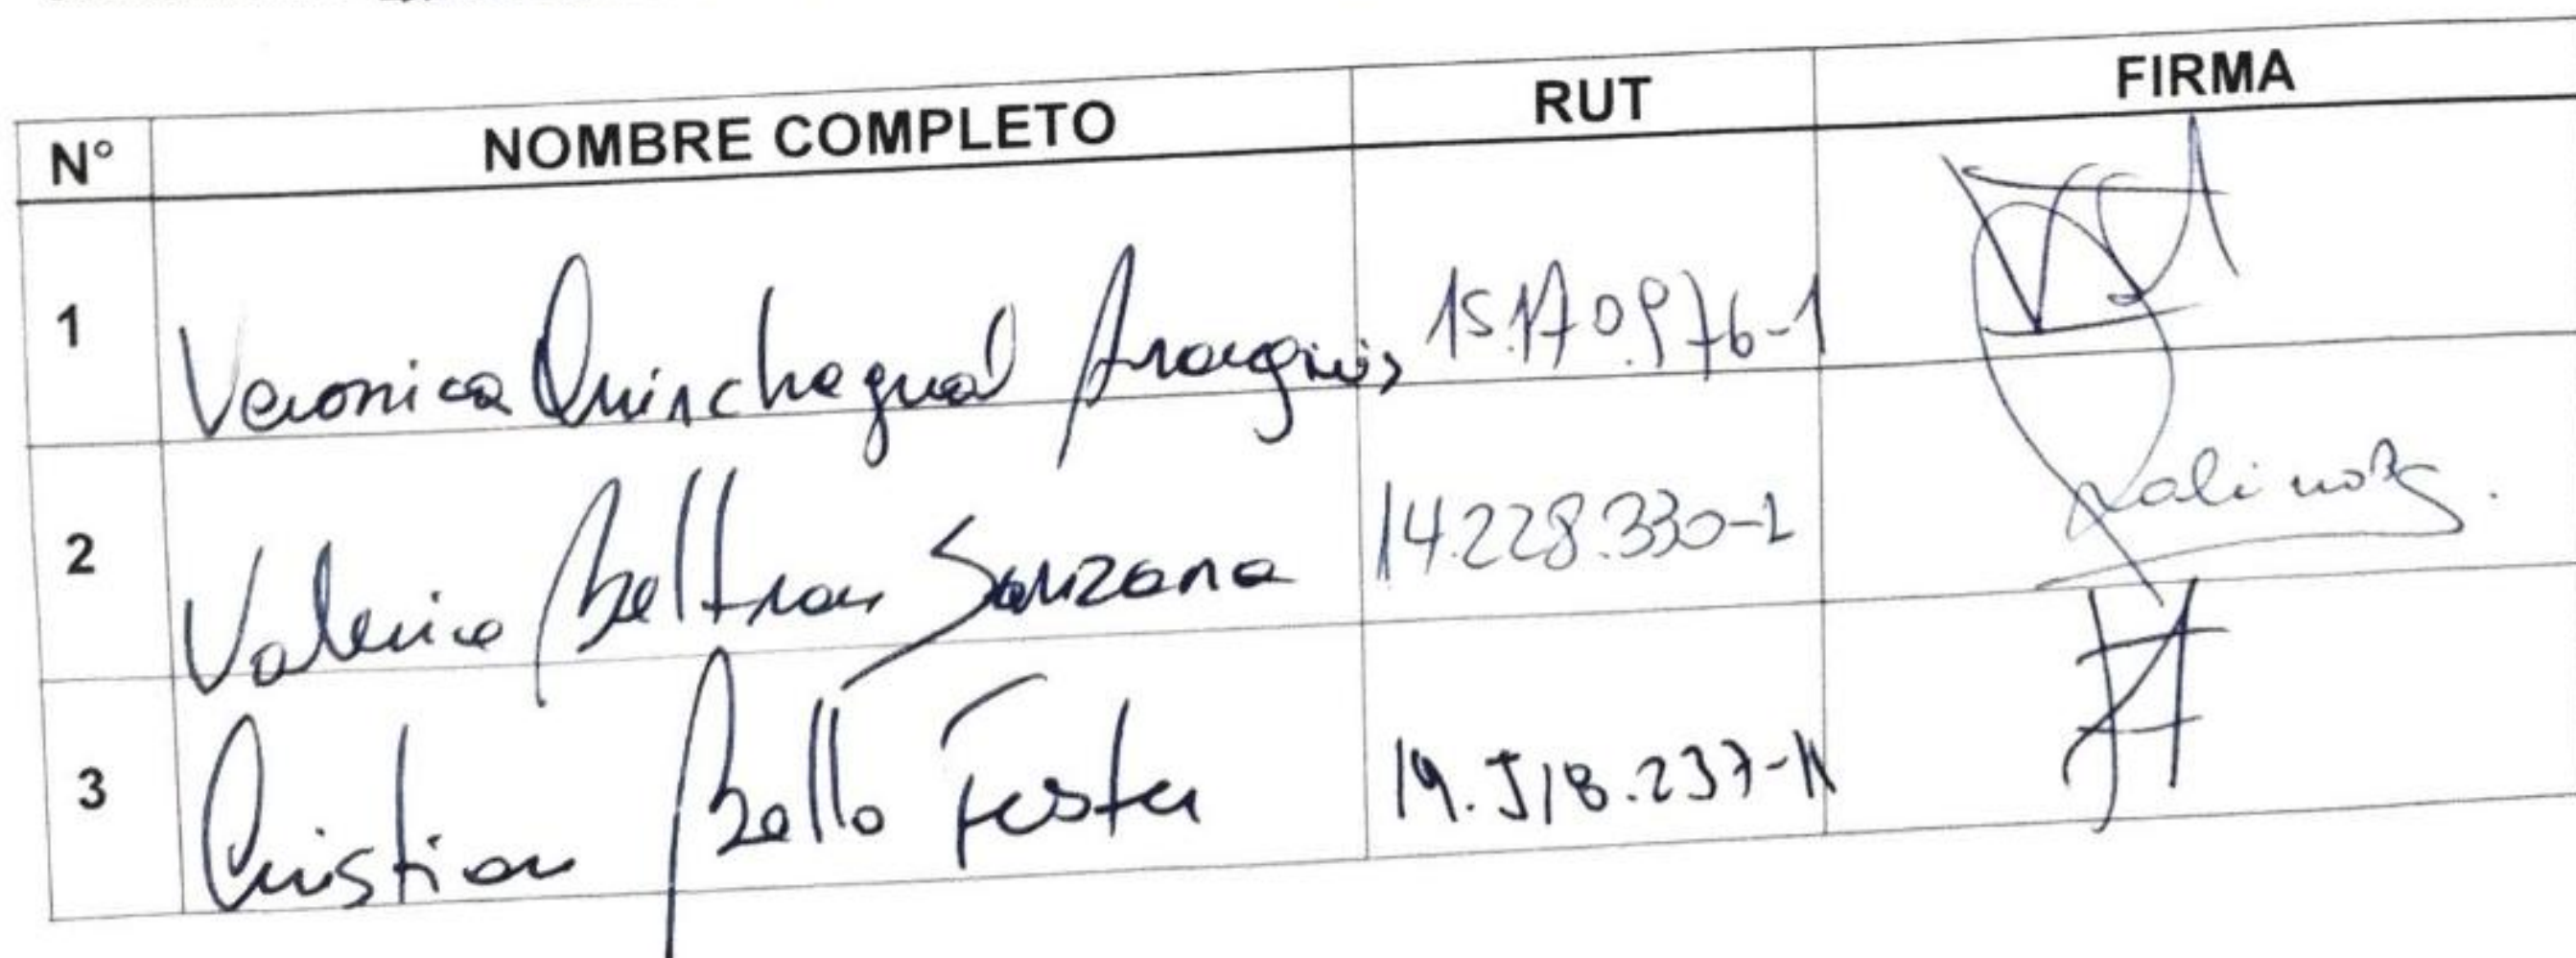 N° NOMBRE COMPLETO RUT FIRMA
1 Veronica Quinchagual 15.170.976-1
2 Valeria Beltran Sanzana 14.228.330-1
3 Cristian Bello Fester 19.518.237